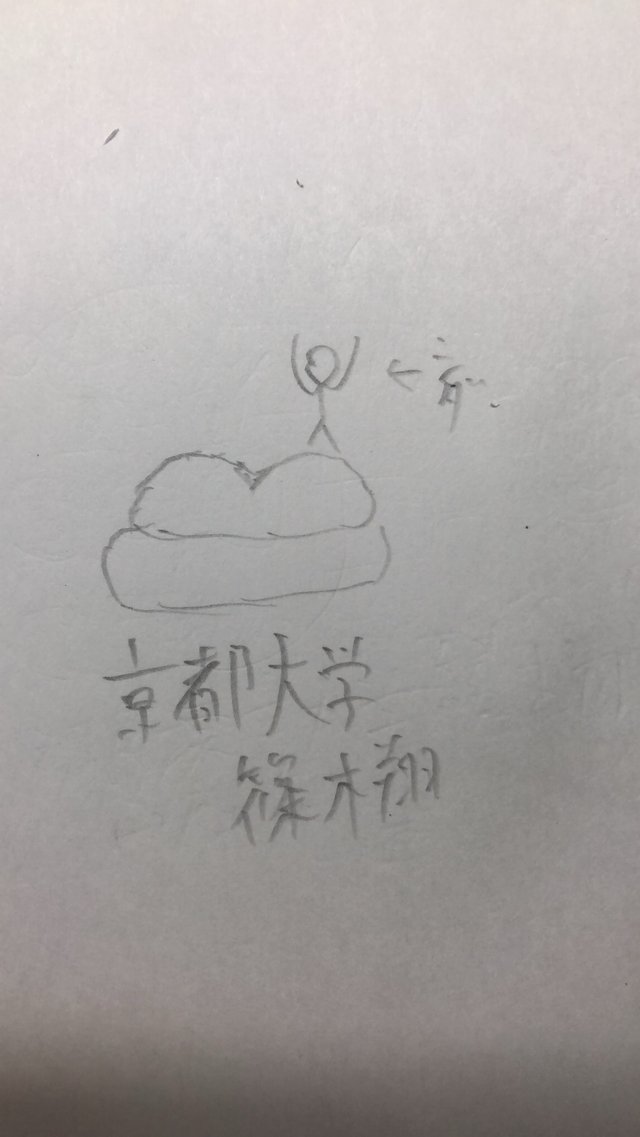 京都大学
篠木翔